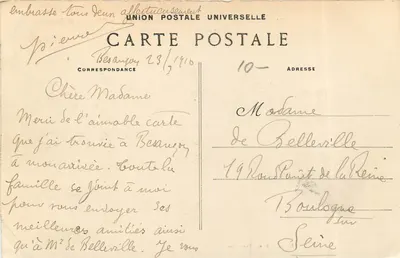 embrasse tous deux affectueusement
Pierre
UNION POSTALE UNIVERSELLE
CARTE POSTALE
Besançon 23/7 1910
10-
CORRESPONDANCE
ADRESSE
Chère Madame
Merci de l'aimable carte
que j'ai trouvée à Besançon
à mon arrivée. Toute la
famille se joint à moi
pour vous envoyer ses
meilleures amitiés ainsi
qu'à Mr de Belleville. Je vous
Madame
de Belleville
19 Rond Point de la Reine
Boulogne
sur
Seine